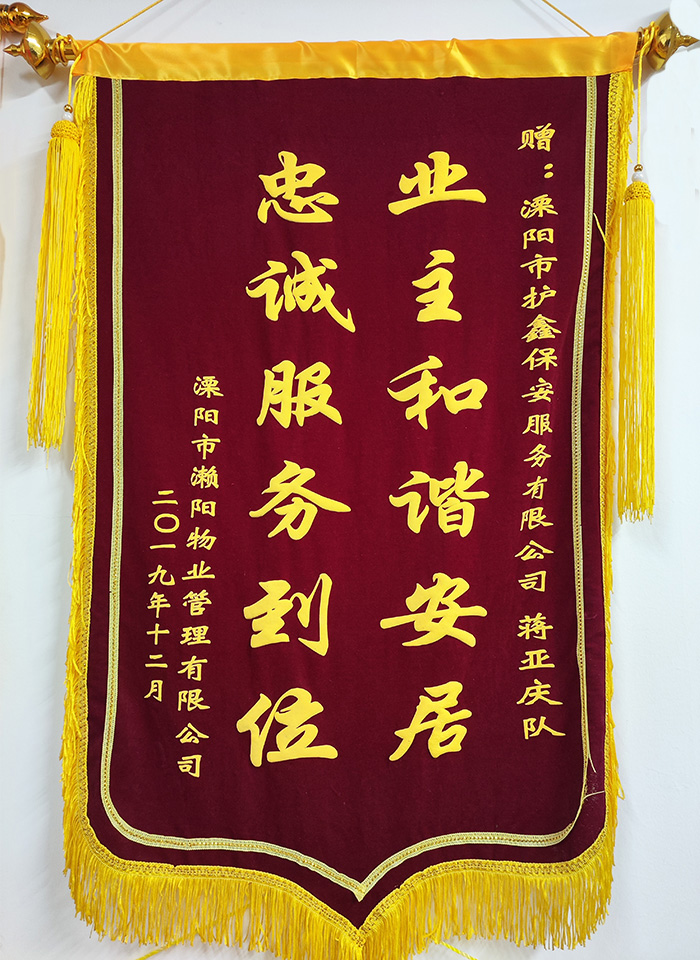 赠：溧阳市护鑫保安服务有限公司 蒋亚庆队
业主和谐安居
忠诚服务到位
溧阳市濑阳物业管理有限公司
二〇一九年十二月